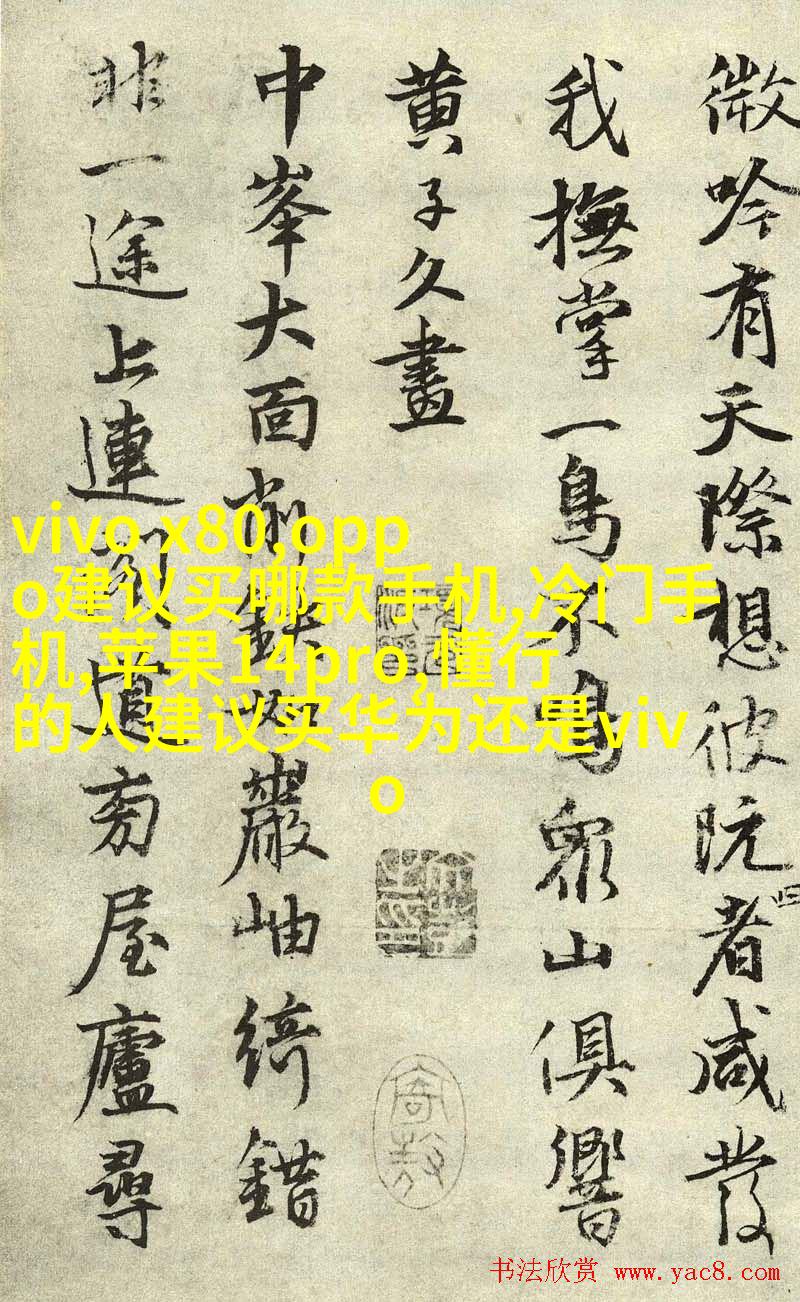 微吟有天際想彼阮者咸發
我撫掌一鳥不鳴眾山俱響
黃子久畫
中峯大面削巖岫綺錯
非一途上連道旁屋廬尋
vivo x80,opp
o建议买哪款手机,冷门手
机,苹果14pro,懂行
的人建议买华为还是viv
o
书法欣赏 www.yac8.com